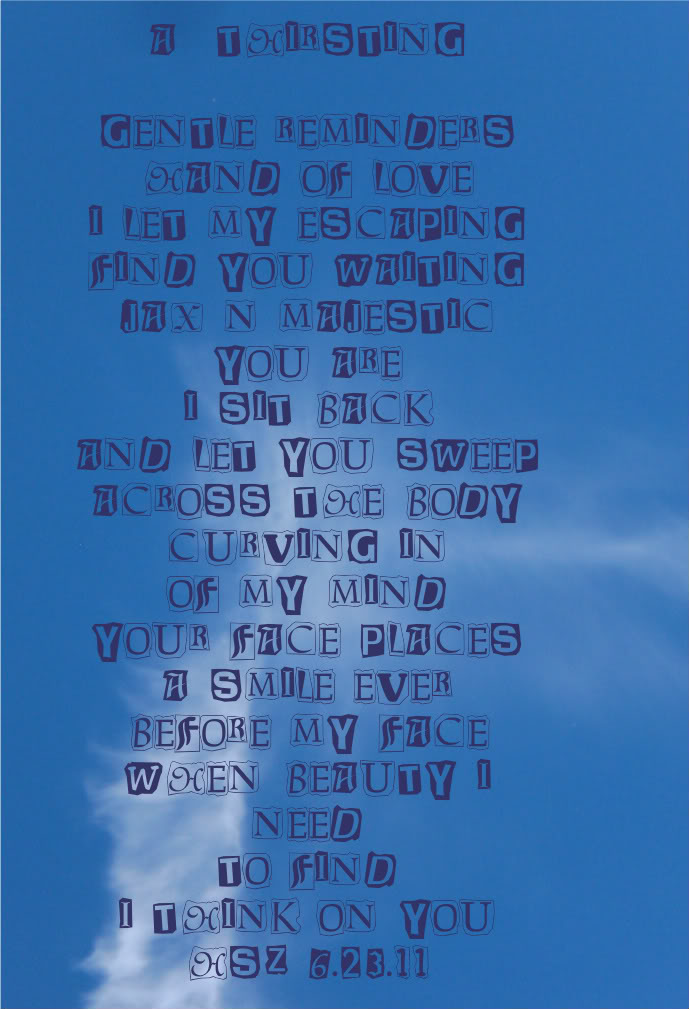 A THIRSTING
GENTLE REMINDERS
HAND OF LOVE
I LET MY ESCAPING
FIND YOU WAITING
JAX N MAJESTIC
YOU ARE
I SIT BACK
AND LET YOU SWEEP
ACROSS THE BODY
CURVING IN
OF MY MIND
YOUR FACE PLACES
A SMILE EVER
BEFORE MY FACE
WHEN BEAUTY I
NEED
TO FIND
I THINK ON YOU
HSZ 6.23.11